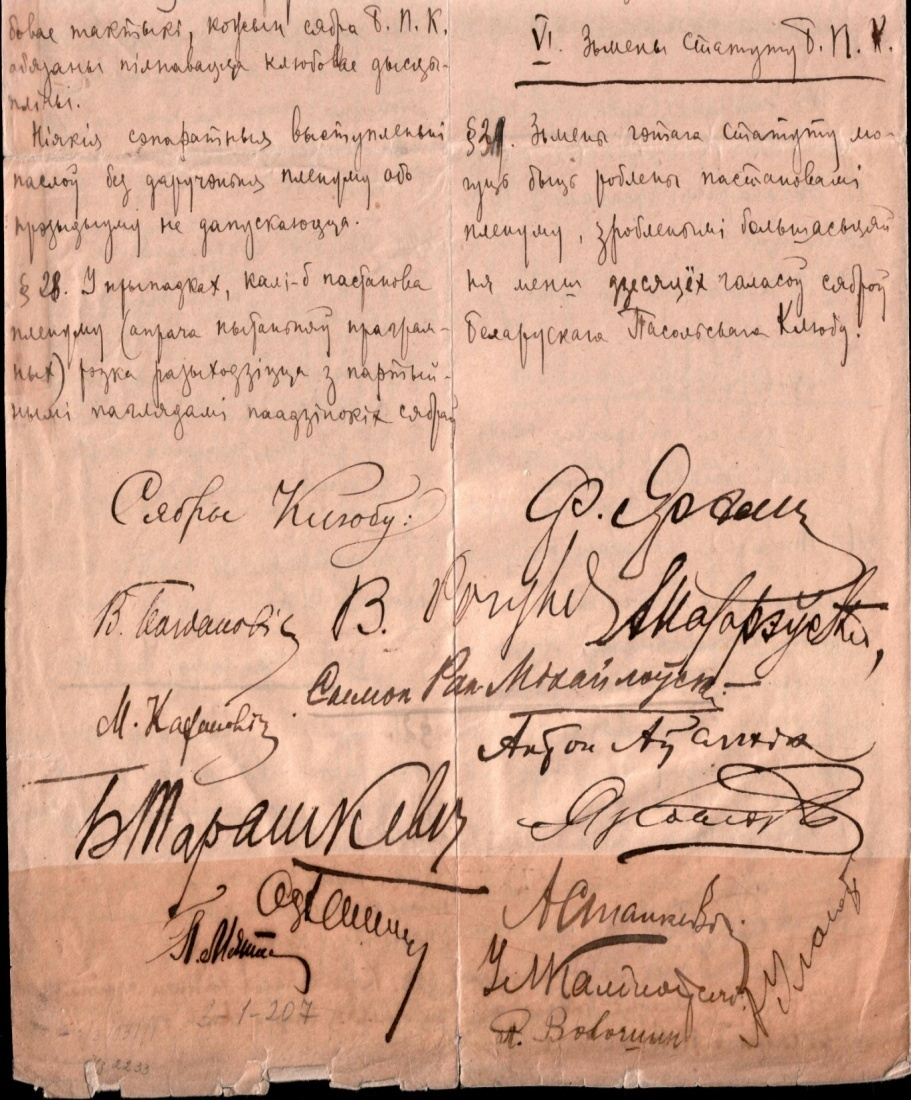 бовае тактыкі, кожын сябра Б. П. К.
абязаны пілнавацца клюбовае дысцы-
пліны.
Ніякія сэпаратныя выступленьні
паслоў без даручэньня пленуму або
прэзыдыуму не дапускаюцца.
§ 28. У прыпадках, калі-б пастанова
пленуму (апрача пытаньняў праграм-
ных) рэзка разыходзіцца з партый-
нымі паглядамі паадзінокіх сяброў
VI. Зьмены Статуту Б. П. К.
§ 29. Зьмены гэтага Статуту мо-
гуць быць роблены пастановамі
пленуму, зробленымі большасьцяй
ня менш дзесяцёх галасоў сяброў
Беларускага Пасольскага Клюбу.
Сябры Клюбу:
Ф. Ярэміч
В. Багдановіч В.
Сымон Рак-Міхайлоўскі
М. Кахановіч
Антон Аўсянік
БТарашкевіч
АСтанкевіч
П. Мятла
УКалиноўскі
П. Волошин
2-1-207